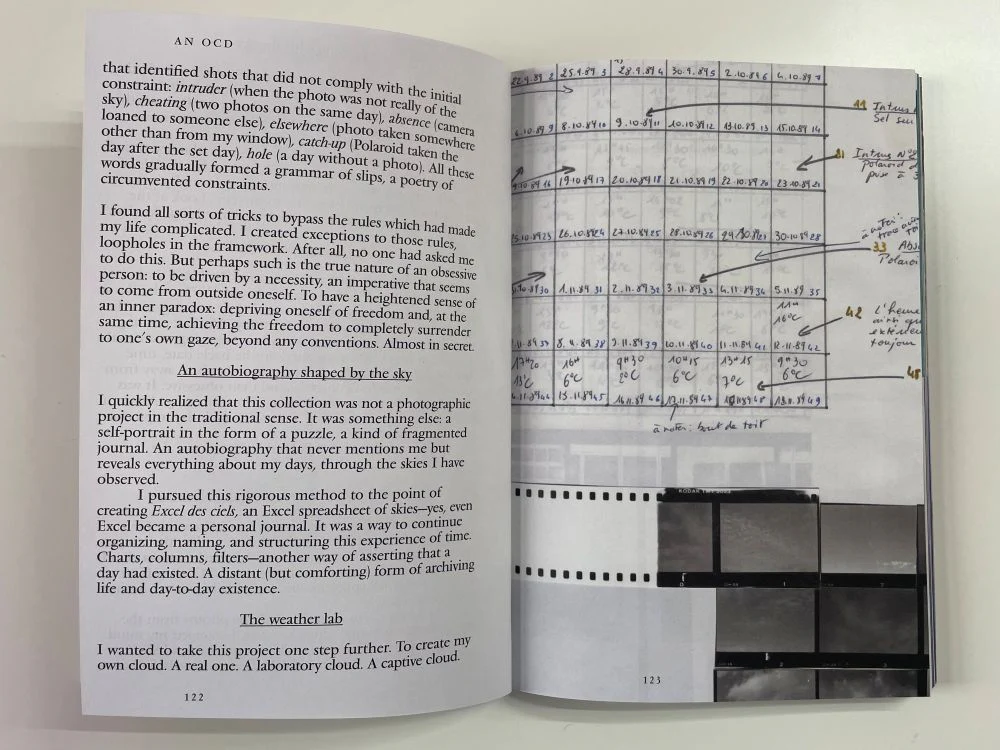 AN OCD
that identified shots that did not comply with the initial
constraint: intruder (when the photo was not really of the
sky), cheating (two photos on the same day), absence (camera
loaned to someone else), elsewhere (photo taken somewhere
other than from my window), catch-up (Polaroid taken the
day after the set day), hole (a day without a photo). All these
words gradually formed a grammar of slips, a poetry of
circumvented constraints.
I found all sorts of tricks to bypass the rules which had made
my life complicated. I created exceptions to those rules,
loopholes in the framework. After all, no one had asked me
to do this. But perhaps such is the true nature of an obsessive
person: to be driven by a necessity, an imperative that seems
to come from outside oneself. To have a heightened sense of
an inner paradox: depriving oneself of freedom and, at the
same time, achieving the freedom to completely surrender
to one's own gaze, beyond any conventions. Almost in secret.
An autobiography shaped by the sky
I quickly realized that this collection was not a photographic
project in the traditional sense. It was something else: a
self-portrait in the form of a puzzle, a kind of fragmented
journal. An autobiography that never mentions me but
reveals everything about my days, through the skies I have
observed.
I pursued this rigorous method to the point of
creating Excel des ciels, an Excel spreadsheet of skies—yes, even
Excel became a personal journal. It was a way to continue
organizing, naming, and structuring this experience of time.
Charts, columns, filters—another way of asserting that a
day had existed. A distant (but comforting) form of archiving
life and day-to-day existence.
The weather lab
I wanted to take this project one step further. To create my
own cloud. A real one. A laboratory cloud. A captive cloud.
122
22.9.89 2 25.9.89 3 28.9.89 4 30.9.89 5 2.10.89 6 4.10.89 7
11 Intrus
8.10.89 10 9.10.89 11 10.10.89 12 13.10.89 13 15.10.89 14
Intrus N°
Polaroid
19.10.89 17 20.10.89 18 21.10.89 19 22.10.89 20 23.10.89 21
26.10.89 24 27.10.89 25 28.10.89 26 30.10.89 28
33 Abs
Polaroi
1.11.89 31 2.11.89 32 3.11.89 33 4.11.89 34 5.11.89 35
11H
16°C
42 L'heure
toujour
8.11.89 38 9.11.89 39 10.11.89 40 11.11.89 41 12.11.89 42
17H20 16H 9H30 10H15 13H15 9H30
13°C 6°C 2°C 6°C 7°C 6°C
48
15.11.89 45 16.11.89 46 17.11.89 47 48 19.11.89 49
à noter: bout de toit
KODAK
0 1 2
2 3
123